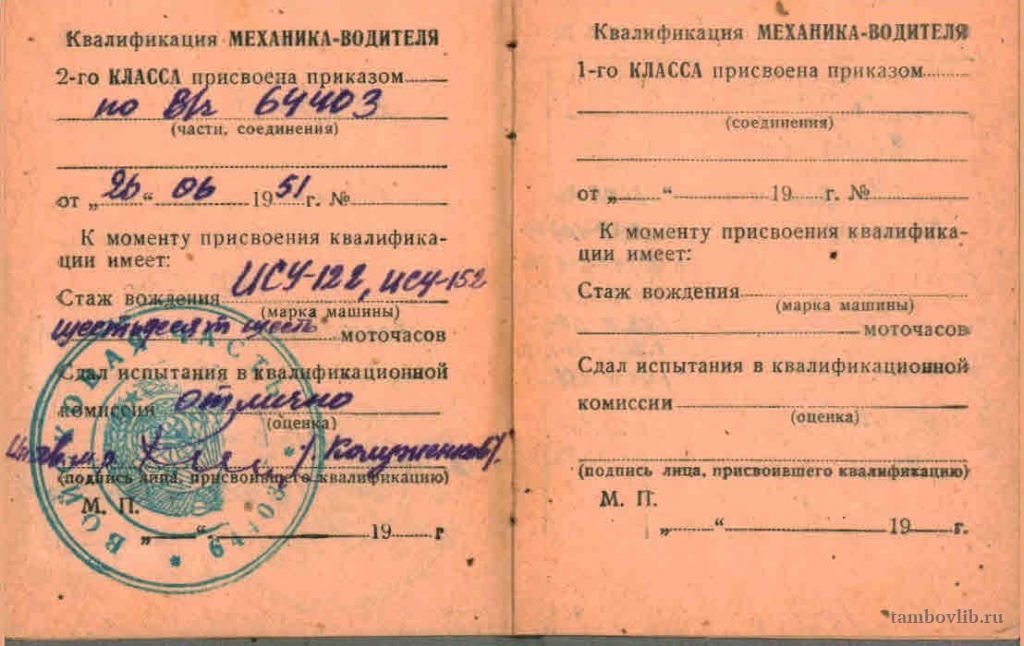 Квалификация МЕХАНИКА-ВОДИТЕЛЯ
2-го КЛАССА присвоена приказом
по в/ч 64403
(части, соединения)
от „26“ 06 1951 г. №
К моменту присвоения квалифика-
ции имеет:
Стаж вождения ИСУ-122, ису-152
(марка машины)
шестьдесят шесть моточасов
Сдал испытания в квалификационной
комиссии отлично
(оценка)
(подпись лица, присвоившего квалификацию)
М. П.
„ “ 19 г
ВОЙСКОВАЯ ЧАСТЬ * 64403 *
Квалификация МЕХАНИКА-ВОДИТЕЛЯ
1-го КЛАССА присвоена приказом
(соединения)
от „ “ 19 г. №
К моменту присвоения квалифика-
ции имеет:
Стаж вождения
(марка машины)
моточасов
Сдал испытания в квалификационной
комиссии
(оценка)
(подпись лица, присвоившего квалификацию)
М. П.
„ “ 19 г.
tambovlib.ru